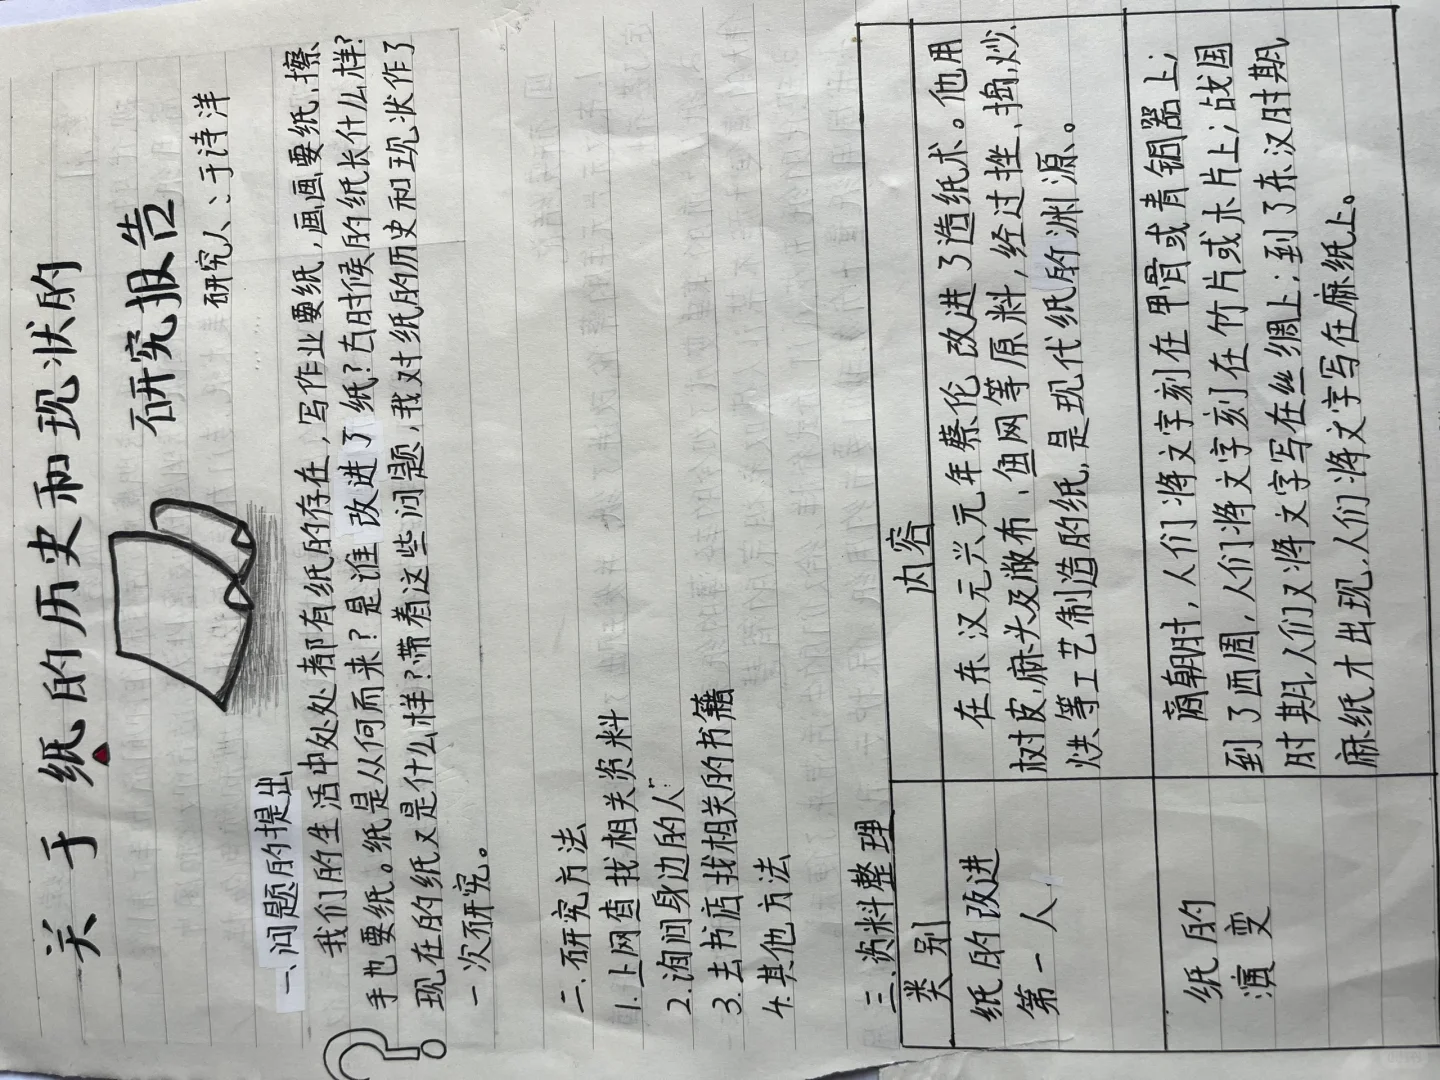 关于纸的历史和现状的
研究报告
研究人：于诗洋
一、问题的提出
我们的生活中处处都有纸的存在，写作业要纸，画画要纸，擦
手也要纸。纸是从何而来？是谁改进了纸？古时候的纸长什么样？
现在的纸又是什么样？带着这些问题，我对纸的历史和现状作了
一次研究。
二、研究方法
1.上网查找相关资料
2.询问身边的人
3.去书店找相关的书籍
4.其他方法
三、资料整理
类别
内容
纸的改进
第一人
在东汉元兴元年蔡伦改进了造纸术。他用
树皮、麻头及敝布、鱼网等原料，经过挫、捣、炒、
烘等工艺制造的纸，是现代纸的渊源。
纸的
演变
商朝时，人们将文字刻在甲骨或青铜器上；
到了西周，人们将文字刻在竹片或木片上；战国
时期，人们又将文字写在丝绸上；到了东汉时期，
麻纸才出现，人们将文字写在麻纸上。